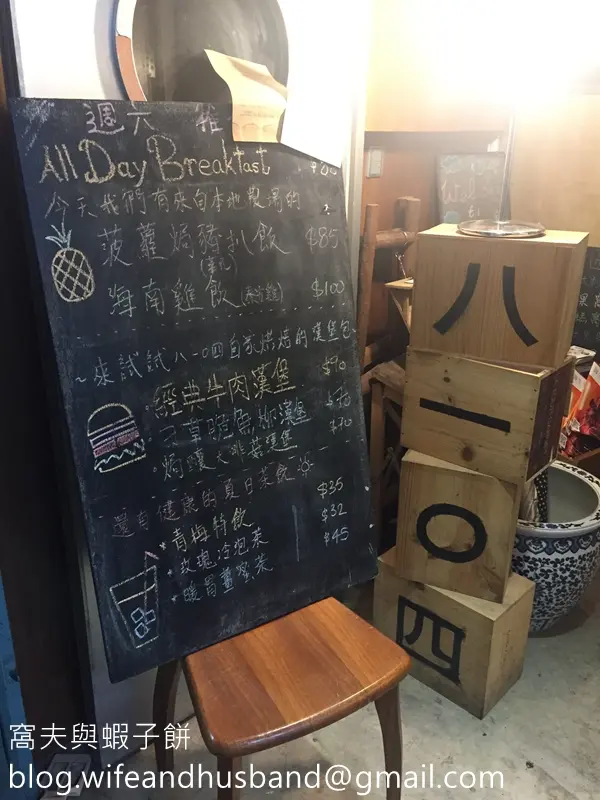 週六
All Day Breakfast
今天我們有來自本地農場的
菠蘿焗豬扒飯 $85
海南雞飯 $100
~來試試八一〇四自家烤焙的漢堡包
經典牛肉漢堡 $90
漢堡
焗釀大啡菇漢堡 $70
還有健康的夏日茶飲
*青梅特飲 $35
*玫瑰冷泡茶 $32
*暖胃薑蜜茶 $45
八
一
〇
四
窩夫與蝦子餅
blog.wifeandhusband@gmail.com